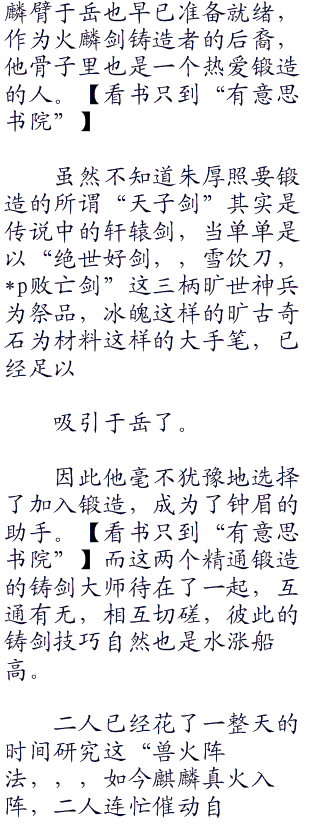 麟臂于岳也早已准备就绪，
作为火麟剑铸造者的后裔，
他骨子里也是一个热爱锻造
的人。【看书只到“有意思
书院”】
虽然不知道朱厚照要锻
造的所谓“天子剑”其实是
传说中的轩辕剑，当单单是
以“绝世好剑，，雪饮刀，
*p败亡剑”这三柄旷世神兵
为祭品，冰魄这样的旷古奇
石为材料这样的大手笔，已
经足以
吸引于岳了。
因此他毫不犹豫地选择
了加入锻造，成为了钟眉的
助手。【看书只到“有意思
书院”】而这两个精通锻造
的铸剑大师待在了一起，互
通有无，相互切磋，彼此的
铸剑技巧自然也是水涨船
高。
二人已经花了一整天的
时间研究这“兽火阵
法，，，如今麒麟真火入
阵，二人连忙催动自